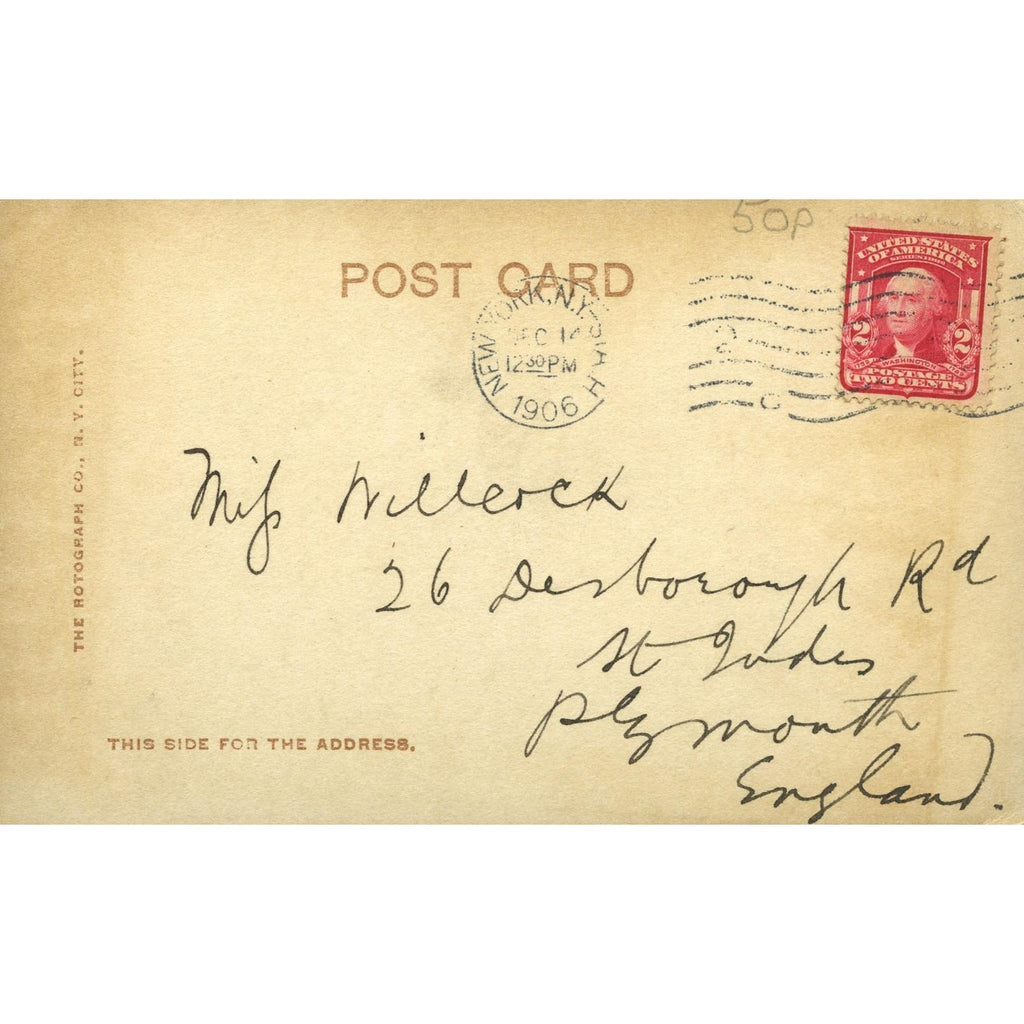 50p
UNITED STATES
OF AMERICA
SERIES 1902
2 2
WASHINGTON
POSTAGE
TWO CENTS
POST CARD
NEW YORK, N.Y. STA H
DEC 14
12 30 PM
1906
C
THE ROTOGRAPH CO., N. Y. CITY.
Miss Willcock
26 Desborough Rd
St Judes
Plymouth
England.
THIS SIDE FOR THE ADDRESS.